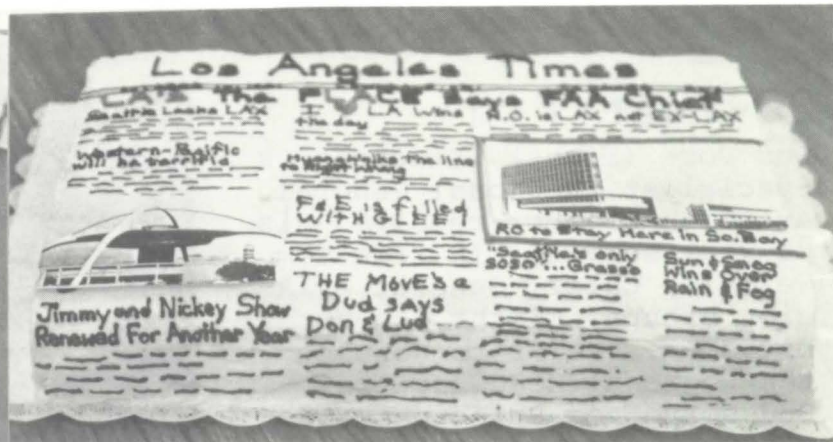 Los Angeles Times
LA'S the PLACE says FAA Chief
Seattle Lacks LAX
Western-Pacific
will be terrific
Jimmy and Nickey Show
Renewed For Another Year
I LA Wins
the day
Walks The line
to Right
F&E is filled
WITH GLEE!
THE MOVE'S a
Dud says
Don & Lud
R.O. is LAX not EX-LAX
RO to Stay Here in So. Bay
"Seattle's only
SoSo"... Grasso
Sun & Smog
Wins Over
Rain & Fog